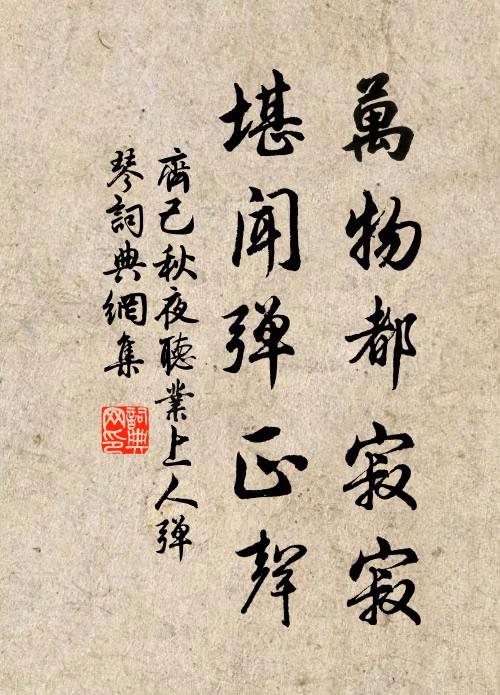 萬物都寂寂
堪聞彈正聲
齊己秋夜聽業上人彈
琴詞典網集
詞典
网印